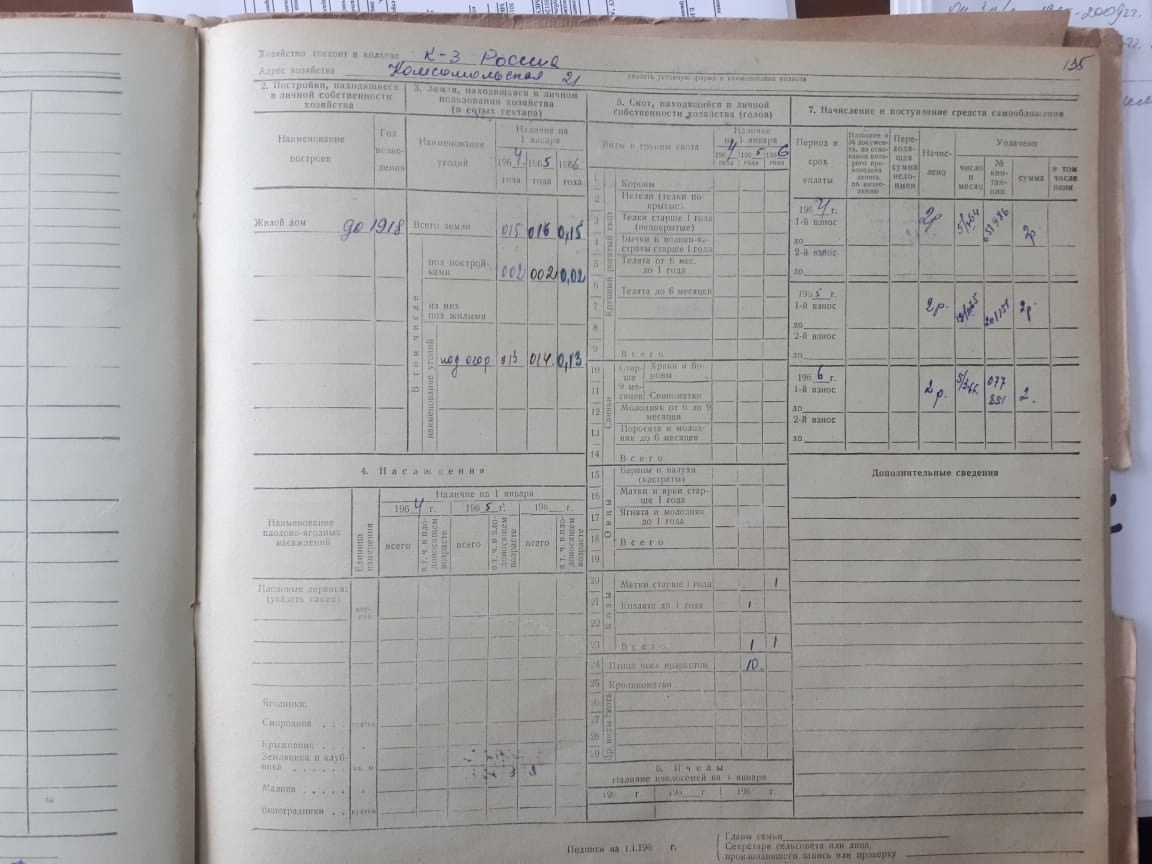 Хозяйство состоит в колхозе К-з Россия
указать уставную форму и наименование колхоза
Адрес хозяйства Комсомольская 21
135
2. Постройки, находящиеся в личной собственности хозяйства
Наименование построек
Год возведения
Жилой дом до 1918
3. Земля, находящаяся в личном пользовании хозяйства (в сотых гектара)
Наименование угодий
Наличие на 1 января
1964 года 1965 года 1966 года
Всего земли 015 016 0,15
В том числе
под постройками 002 002 0,02
из них под жилыми
наименование угодий
под огор 013 014 0,13
4. Насаждения
Наименование плодово-ягодных насаждений
Единица измерения
Наличие на 1 января
1964 г. 1965 г. 196 г.
всего
в т. ч. в плодоносящем возрасте
всего
в т. ч. в плодоносящем возрасте
всего
в т. ч. в плодоносящем возрасте
Плодовые деревья: (указать какие)
Ягодники:
Смородина . . .
Крыжовник . .
Земляника и клубника . . . . . . кв. м
Малина . . . .
Виноградники . .
5. Скот, находящийся в личной собственности хозяйства (голов)
Виды и группы скота
Наличие на 1 января
1964 года 1965 года 1966 года
Крупный рогатый скот
1 Коровы
2 Нетели (телки покрытые)
3 Телки старше 1 года (непокрытые)
4 Бычки и волики-кастраты старше 1 года
5 Телята от 6 мес. до 1 года
6 Телята до 6 месяцев
7
8
9 Всего
Свиньи
Старше 9 месяцев
10 Хряки и боровы
11 Свиноматки
12 Молодняк от 6 до 9 месяцев
13 Поросята и молодняк до 6 месяцев
14 Всего
Овцы
15 Бараны и валухи (кастраты)
16 Матки и ярки старше 1 года
17 Ягнята и молодняк до 1 года
18 Всего
19
Козы
20 Матки старше 1 года 1
21 Козлята до 1 года 1
22
23 Всего 1 1
24 Птица всех возрастов 10
25 Кроликоматки
Пр. виды скота
26
27
28
29
6. Пчелы
Наличие пчелосемей на 1 января
196 г. 196 г. 196 г.
7. Начисление и поступление средств самообложения
Период и срок уплаты
Название и № документа, на основании которого произведена запись по начислению
Переходящая сумма недоимки
Начислено
Уплачено
число и месяц
№ квитанции
сумма
в том числе пени
1964 г.
1-й взнос 2р 2р
до
2-й взнос
до
1965 г.
1-й взнос 2р. 201151 2р
до
2-й взнос
до
1966 г.
1-й взнос 2р. 077 251 2.
до
2-й взнос
до
Дополнительные сведения
Подписи на 1.1.196 г.
Главы семьи
Секретаря сельсовета или лица,
производившего запись или проверку